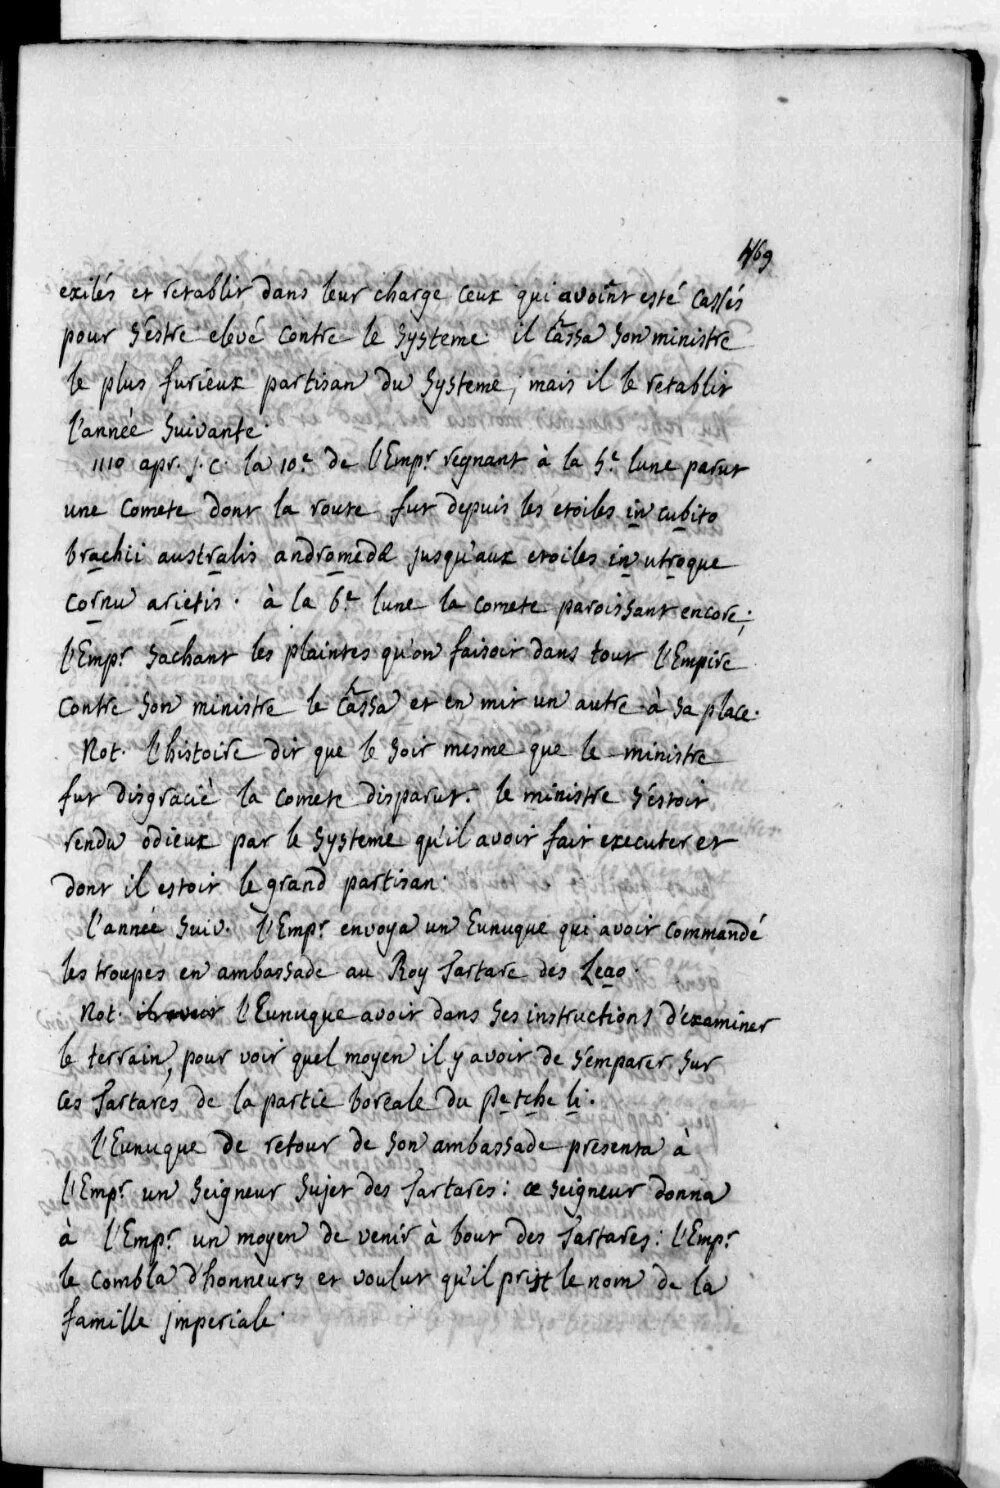 469
exilés et retablir dans leur charge ceux qui avoint esté cassés
pour s'estre elevé contre le systeme il cassa son ministre
le plus furieux partisan du systeme, mais il le retablit
l'année suivante.
1110 apr. j. c. la 10.e de l'Emp.r regnant à la 5.e lune parut
une comete dont la route fut depuis les etoiles in cubito
brachii australis andromedæ jusqu'aux etoiles in utroque
cornu arietis. à la 6.e lune la comete paroissant encore;
l'Emp.r sachant les plaintes qu'on faisoit dans tout l'Empire
contre son ministre le cassa et en mit un autre à sa place.
Not. l'histoire dit que le soir mesme que le ministre
fut disgracié la comete disparut. le ministre s'estoit
rendu odieux par le systeme qu'il avoit fait executer et
dont il estoit le grand partisan.
l'année suiv. l'Emp.r envoya un Eunuque qui avoit commandé
les troupes en ambassade au Roy Tartare des Leao.
Not. il avoit l'Eunuque avoit dans ses instructions d'examiner
le terrain, pour voir quel moyen il y avoit de s'emparer sur
ces Tartares de la partie boreale du petche li.
l'Eunuque de retour de son ambassade presenta à
l'Emp.r un seigneur sujet des Tartares: ce seigneur donna
à l'Emp.r un moyen de venir à bout des Tartares: l'Emp.r
le combla d'honneurs et voulut qu'il prist le nom de la
famille jmperiale.